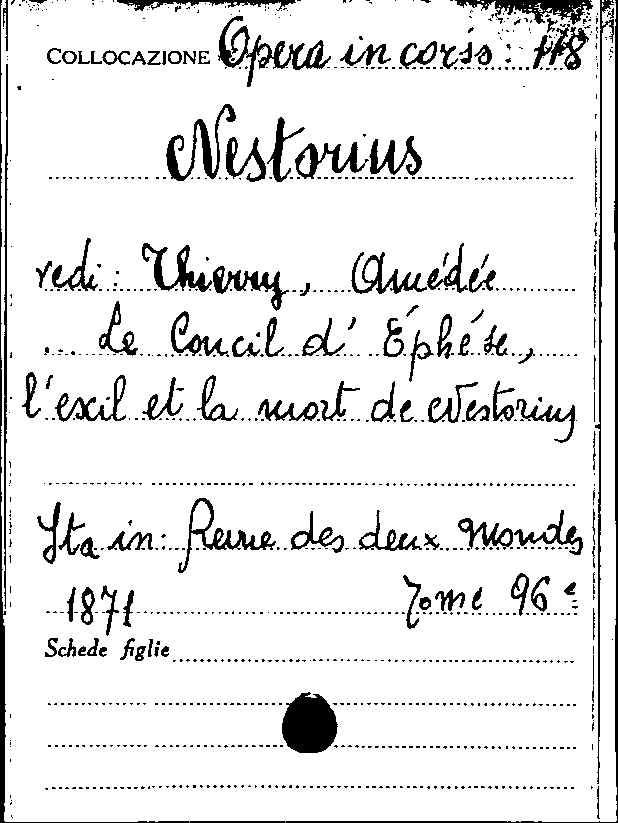 COLLOCAZIONE Opera in corso: 118
Nestorius
vedi: Thierry, Amédée
... Le Concil d' Éphése,
l'exil et la mort de Nestorius
Sta in: Revue des deux Mondes
1871 Tome 96e
Schede figlie